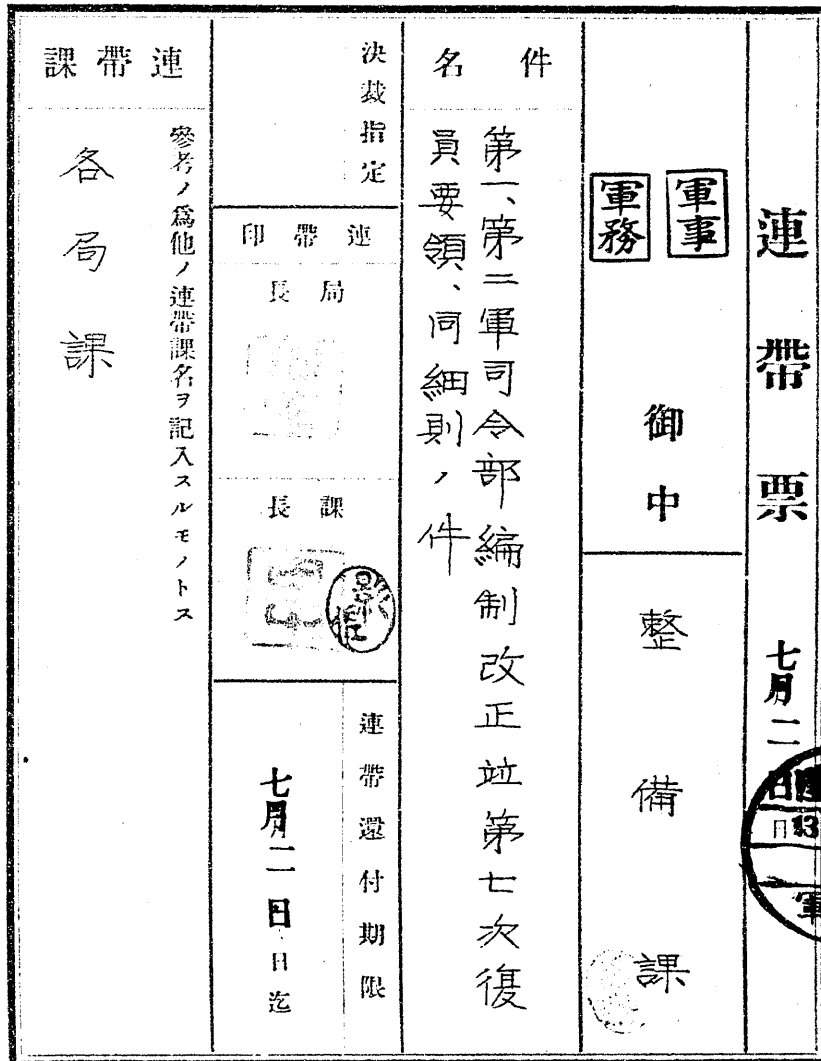 連帶票　七月二日
軍事
軍務
御中
整備課
件名
第一、第二軍司令部編制改正竝第七次復
員要領、同細則ノ件
決裁指定
連帶印
局長
課長
連帶還付期限
七月二日
日迄
連帶課
參考ノ爲他ノ連帶課名ヲ記入スルモノトス
各局課